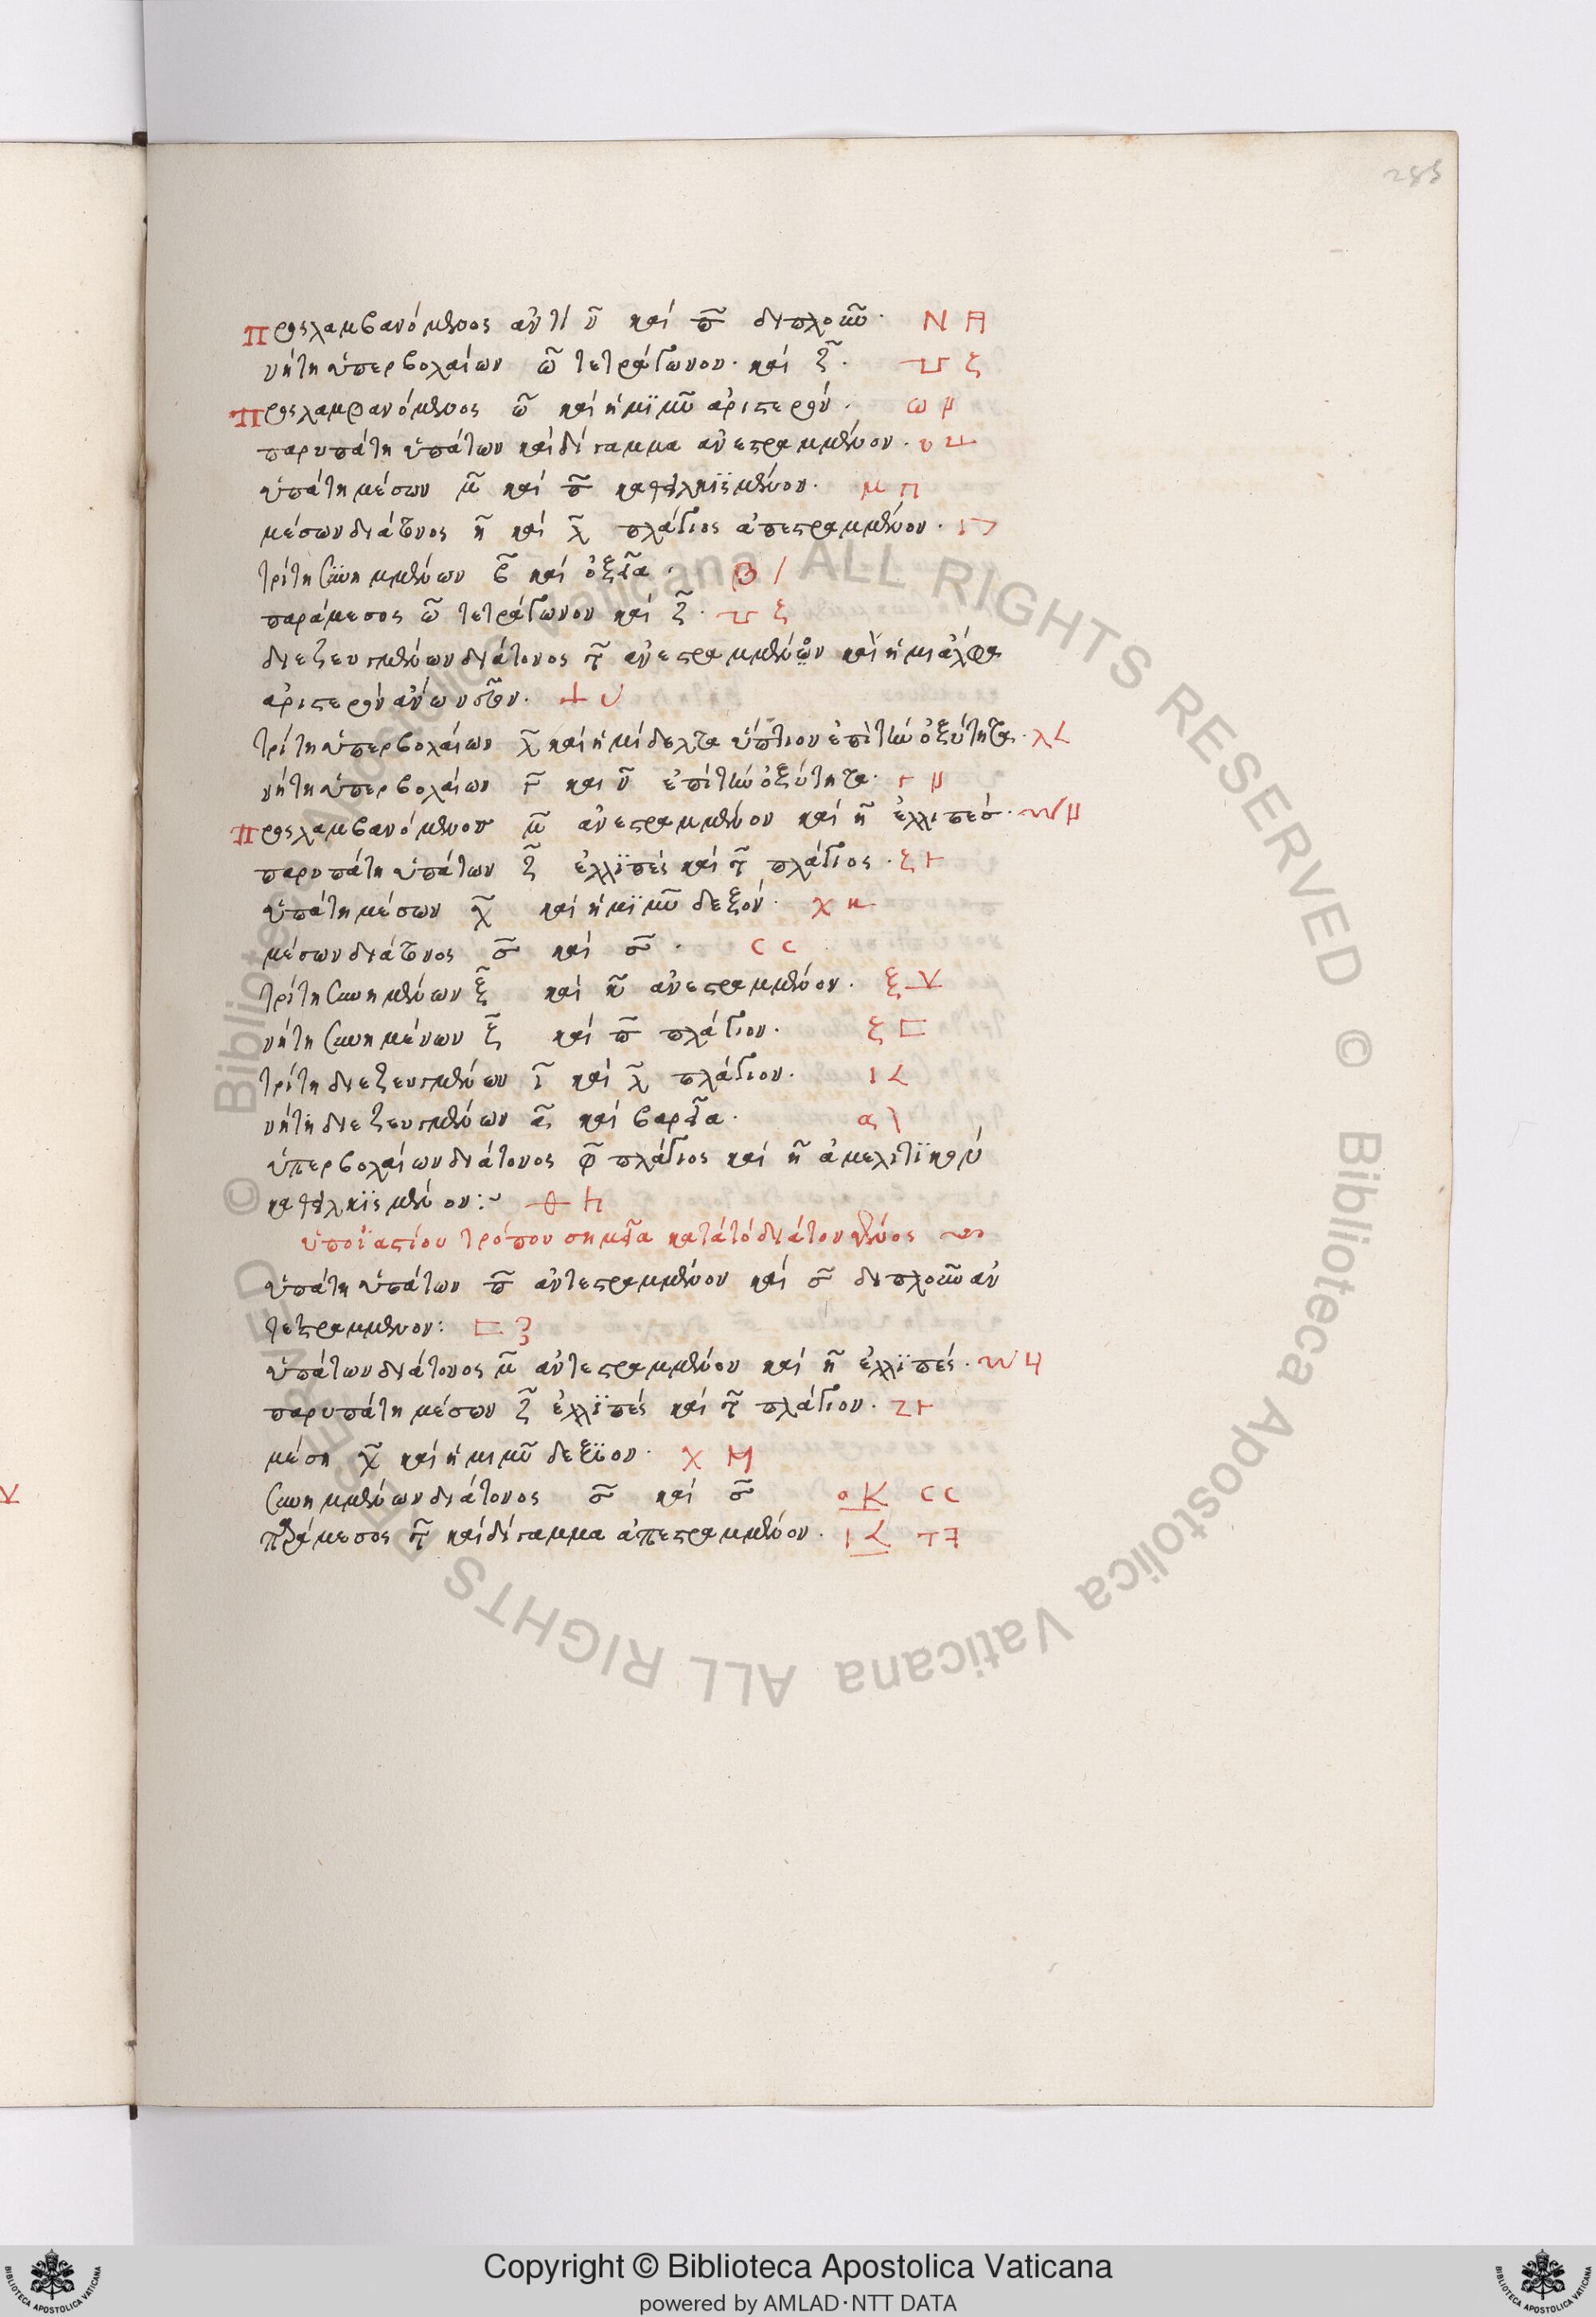 285
Προσλαμβανόμενος ἀντὶ ν̃ καὶ π̃ διπλοῦν · Ν Α
νήτη ὑπερβολαίων ω̃ τετράγωνον · καὶ ζ̃ · ζ
Προσλαμβανόμενος ω̃ καὶ ἡμϊμῦ ἀριστερόν · ω
παρυπάτη ὑπάτων καὶ δίγαμμα ἀνεστραμμένον ·
ὑπάτη μέσων μ̃ καὶ π̃ καθειλκϊσμένον · μ π
μέσων διάτονος η̃ καὶ λ̃ πλάγιος ἀπεστραμμένον ·
τρίτη συνημμένων β̃ καὶ ὀξεῖα · β /
παράμεσος ω̃ τετράγωνον καὶ ζ̃ · ξ
διεζευγμένων διάτονος τ̃ ἀνεστραμμένον καὶ ἡμιάλφα
ἀριστερὸν ἄνω νεῦον ·
τρίτη ὑπερβολαίων λ̃ καὶ ἡμίδελτα ὕπτιον ἐπὶ τὴν ὀξύτητα · λ <
νήτη ὑπερβολαίων γ̃ καὶ ν̃ ἐπὶ τὴν ὀξύτητα · γ
Προσλαμβανόμενος μ̃ ἀνεστραμμένον καὶ η̃ ἐλλιπές ·
παρυπάτη ὑπάτων ζ̃ ἐλλϊπὲς καὶ τ̃ πλάγιος · ξ ⊢
ὑπάτη μέσων χ̃ καὶ ἡμϊμῦ δεξιόν · χ
μέσων διάτονος σ̃ καὶ σ̃ · C C
τρίτη συνημένων ξ̃ καὶ κ̃ ἀνεστραμμένον · ξ
νήτη συνημένων ξ̃ καὶ π̃ πλάγιον · ξ ⊏
τρίτη διεζευγμένων ι̃ καὶ λ̃ πλάγιον · Ι <
νήτη διεζευγμένων α̃ καὶ βαρεῖα · α \
ὑπερβολαίων διάτονος φ̃ πλάγιος καὶ η̃ ἀμελιτϊκὸν
καθειλκϊσμένον :~ h
ὑποϊαστίου τρόπου σημεῖα κατὰ τὸ διάτονον γένος
ὑπάτη ὑπάτων π̃ ἀντεστραμμένον καὶ σ̃ διπλοῦν ἀν
τεστραμμένον : ⊏
ὑπάτων διάτονος μ̃ ἀντεστραμμένον καὶ η̃ ἐλλϊπές ·
παρυπάτη μέσων ζ̃ ἐλλϊπὲς καὶ τ̃ πλάγιον · Ζ ⊢
μέση χ̃ καὶ ἡμιμῦ δεξϊον · χ
συνημμένων διάτονος σ̃ καὶ σ̃ ο Κ C C
παράμεσος τ̃ καὶ δίγαμμα ἀπεστραμμένον · Ι < Τ
© Biblioteca Apostolica Vaticana ALL RIGHTS RESERVED © Biblioteca Apostolica Vaticana ALL RIGHTS RESERVED
Copyright © Biblioteca Apostolica Vaticana
powered by AMLAD·NTT DATA
BIBLIOTECA APOSTOLICA VATICANA
BIBLIOTECA APOSTOLICA VATICANA